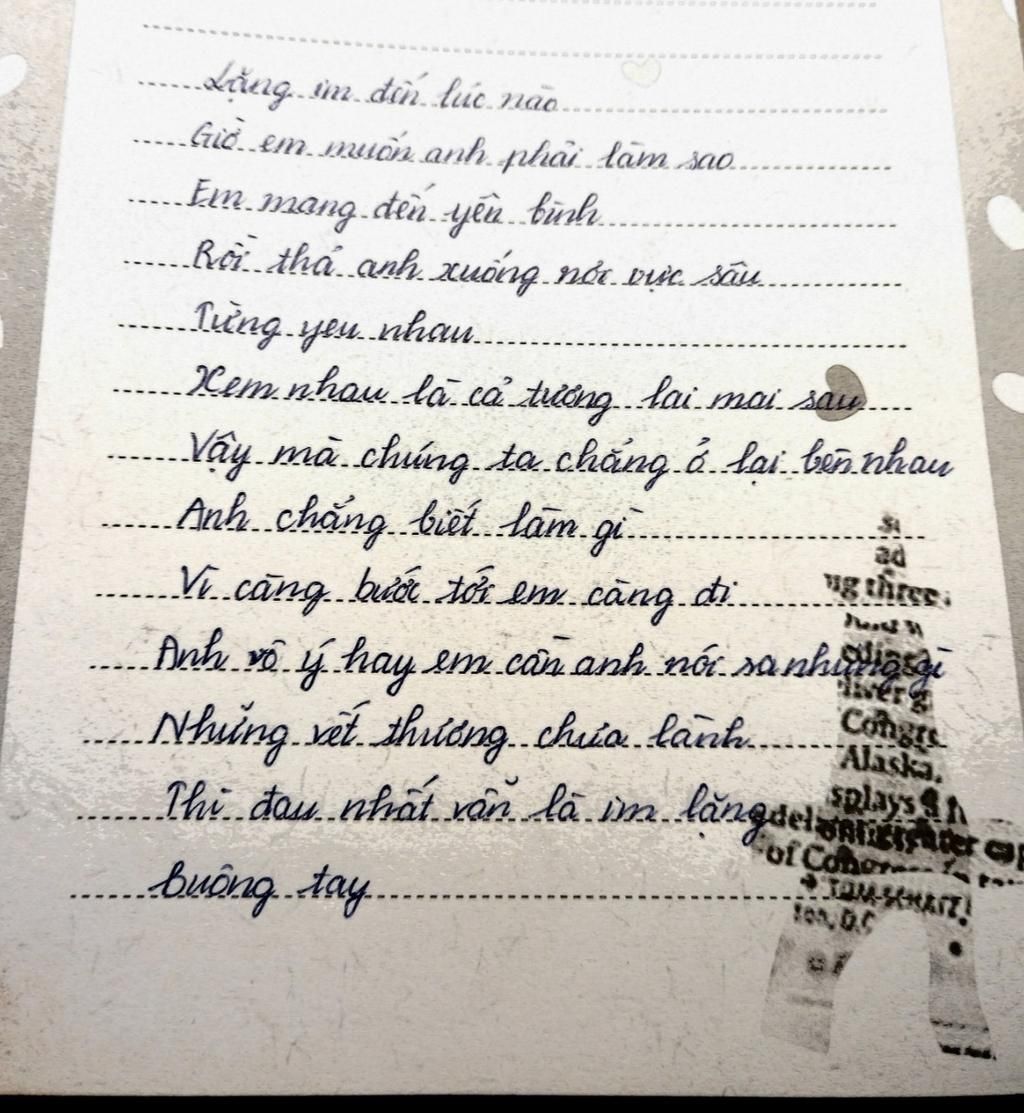 Lặng im đến lúc nào
Giờ em muốn anh phải làm sao
Em mang đến yên bình
Rồi thả anh xuống nơi vực sâu
Từng yeu nhau
Xem nhau là cả tương lai mai sau
Vậy mà chúng ta chẳng ở lại bên nhau
Anh chẳng biết làm gì
Vì càng bước tới em càng đi
Anh vô ý hay em cần anh nói ra những gì
Những vết thương chưa lành
Thì đau nhất vẫn là im lặng
buông tay
ad
ug three
Congre
Alaska,
splays
of Congress